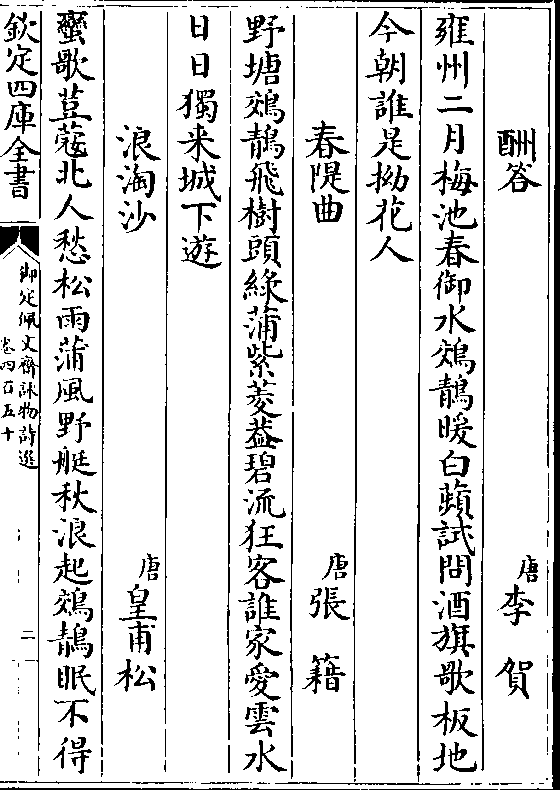 酬答
唐李賀
雍州二月梅池春御水鵁鶄暖白蘋試問酒旗歌板地
今朝誰是拗花人
春隄曲
唐張籍
野塘鵁鶄飛樹頭綠蒲紫菱葢碧流狂客誰家愛雲水
日日獨来城下遊
浪淘沙
唐皇甫松
蠻歌荳蔻北人愁松雨蒲風野艇秋浪起鵁鶄眠不得
欽定四庫全書
御定佩文齋詠物詩選
卷四百五十
二